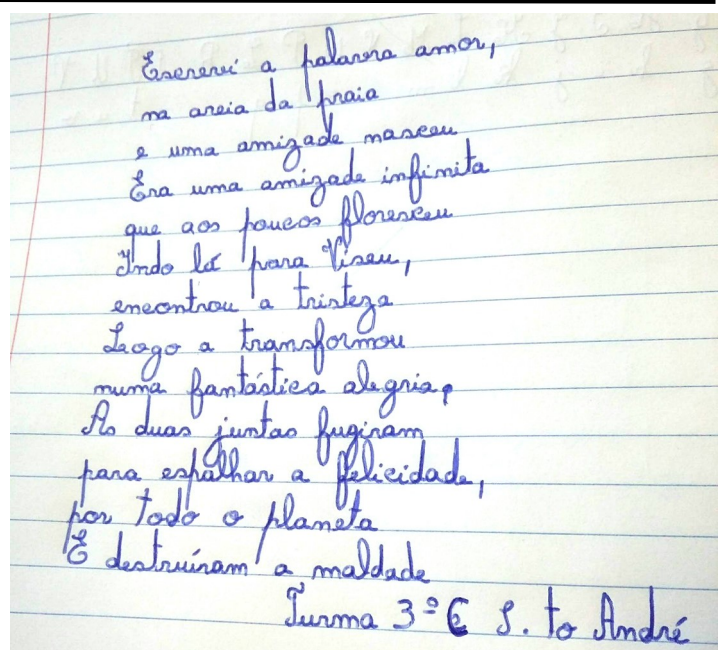 Escrevi a palavra amor,
na areia da praia
e uma amizade nasceu
Era uma amizade infinita
que aos poucos floresceu
Indo lá para Viseu,
encontrou a tristeza
Logo a transformou
numa fantástica alegria,
As duas juntas fugiram
para espalhar a felicidade,
por todo o planeta
E destruíram a maldade
Turma 3º C S. to André